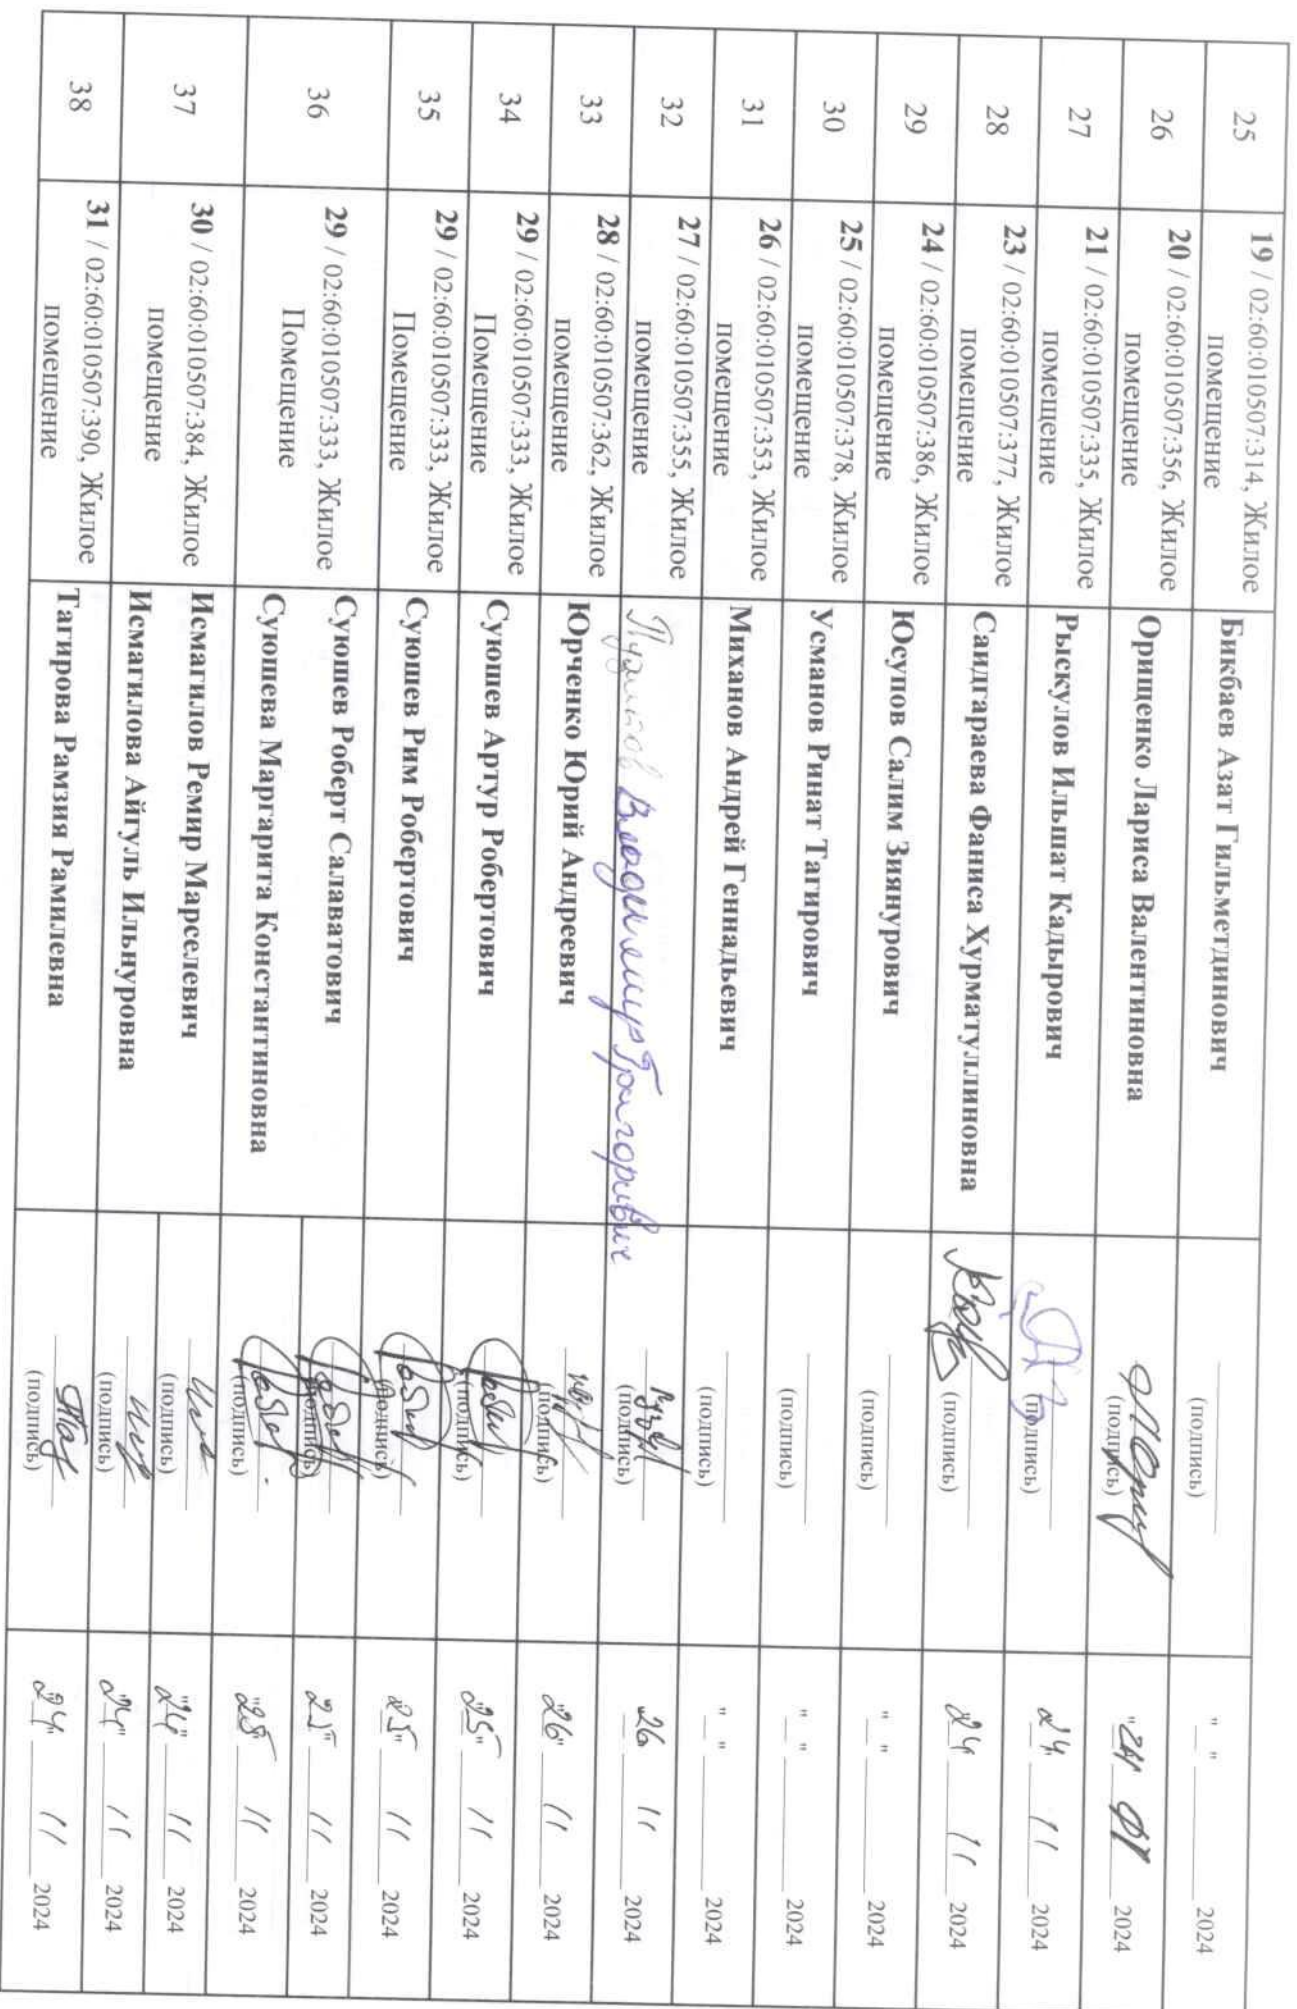 25
19 / 02:60:010507:314, Жилое
помещение
Бикбаев Азат Гильметдинович
(подпись)
"__" ________ 2024
26
20 / 02:60:010507:356, Жилое
помещение
Орищенко Лариса Валентиновна
(подпись)
2024
27
21 / 02:60:010507:335, Жилое
помещение
Рыскулов Ильшат Кадырович
(подпись)
24 11 2024
28
23 / 02:60:010507:377, Жилое
помещение
Саидгараева Фаниса Хурматуллиновна
(подпись)
24 11 2024
29
24 / 02:60:010507:386, Жилое
помещение
Юсупов Салим Зиянурович
(подпись)
"__" ________ 2024
30
25 / 02:60:010507:378, Жилое
помещение
Усманов Ринат Тагирович
(подпись)
"__" ________ 2024
31
26 / 02:60:010507:353, Жилое
помещение
Миханов Андрей Геннадьевич
(подпись)
"__" ________ 2024
32
27 / 02:60:010507:355, Жилое
помещение
Владимир Григорьевич
(подпись)
26 11 2024
33
28 / 02:60:010507:362, Жилое
помещение
Юрченко Юрий Андреевич
(подпись)
"26" 11 2024
34
29 / 02:60:010507:333, Жилое
Помещение
Суюшев Артур Робертович
(подпись)
"25" 11 2024
35
29 / 02:60:010507:333, Жилое
Помещение
Суюшев Рим Робертович
(подпись)
"25" 11 2024
36
29 / 02:60:010507:333, Жилое
Помещение
Суюшев Роберт Салаватович
(подпись)
"25" 11 2024
Суюшева Маргарита Константиновна
(подпись)
"25" 11 2024
37
30 / 02:60:010507:384, Жилое
помещение
Исмагилов Ремир Марселевич
(подпись)
"24" 11 2024
Исмагилова Айгуль Ильнуровна
(подпись)
"24" 11 2024
38
31 / 02:60:010507:390, Жилое
помещение
Тагирова Рамзия Рамилевна
(подпись)
"24" 11 2024